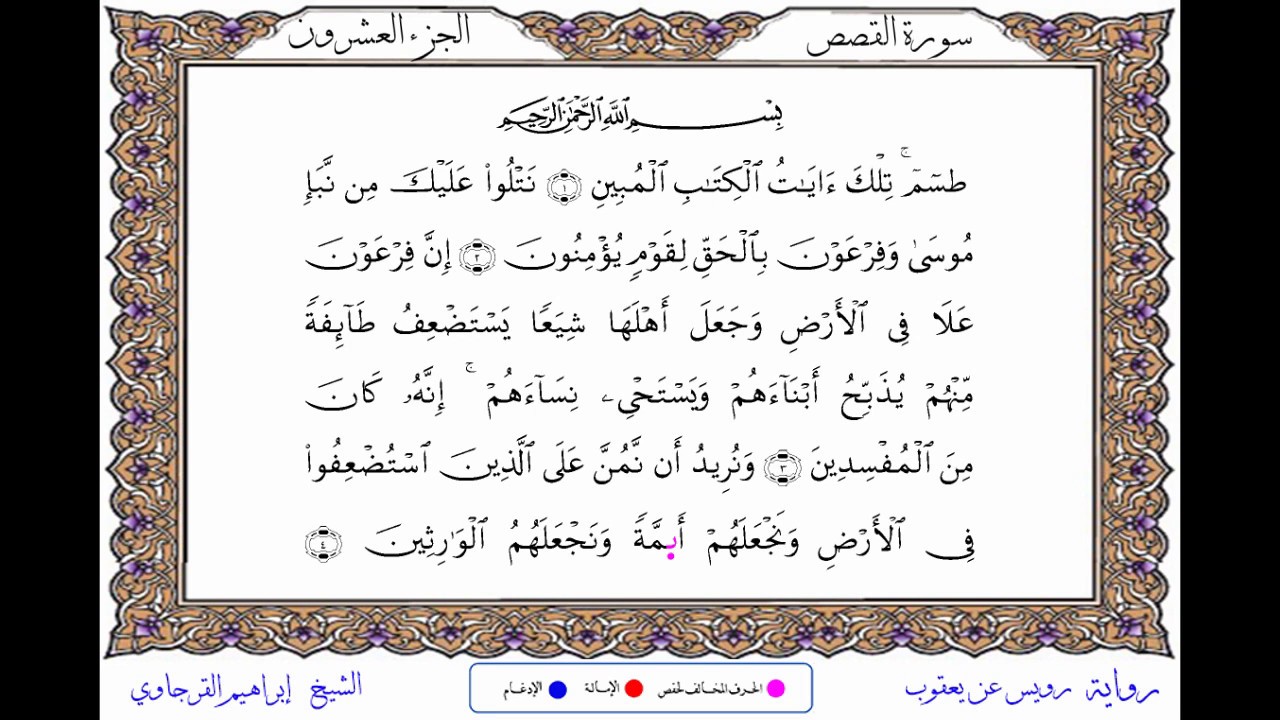 سورة القصص
الجزء العشرون
بِسْمِ اللَّهِ الرَّحْمَٰنِ الرَّحِيمِ
طسٓمٓ ۚ تِلْكَ ءَايَٰتُ ٱلْكِتَٰبِ ٱلْمُبِينِ ١ نَتْلُوا۟ عَلَيْكَ مِن نَّبَإِ
مُوسَىٰ وَفِرْعَوْنَ بِٱلْحَقِّ لِقَوْمٍ يُؤْمِنُونَ ٢ إِنَّ فِرْعَوْنَ
عَلَا فِى ٱلْأَرْضِ وَجَعَلَ أَهْلَهَا شِيَعًا يَسْتَضْعِفُ طَآئِفَةً
مِّنْهُمْ يُذَبِّحُ أَبْنَآءَهُمْ وَيَسْتَحْىِۦ نِسَآءَهُمْ ۚ إِنَّهُۥ كَانَ
مِنَ ٱلْمُفْسِدِينَ ٣ وَنُرِيدُ أَن نَّمُنَّ عَلَى ٱلَّذِينَ ٱسْتُضْعِفُوا۟
فِى ٱلْأَرْضِ وَنَجْعَلَهُمْ أَىِٕمَّةً وَنَجْعَلَهُمُ ٱلْوَٰرِثِينَ ٤
رواية رويس عن يعقوب
الحرف المخالف لحفص
الإمالة
الإدغام
الشيخ إبراهيم القرجاوي